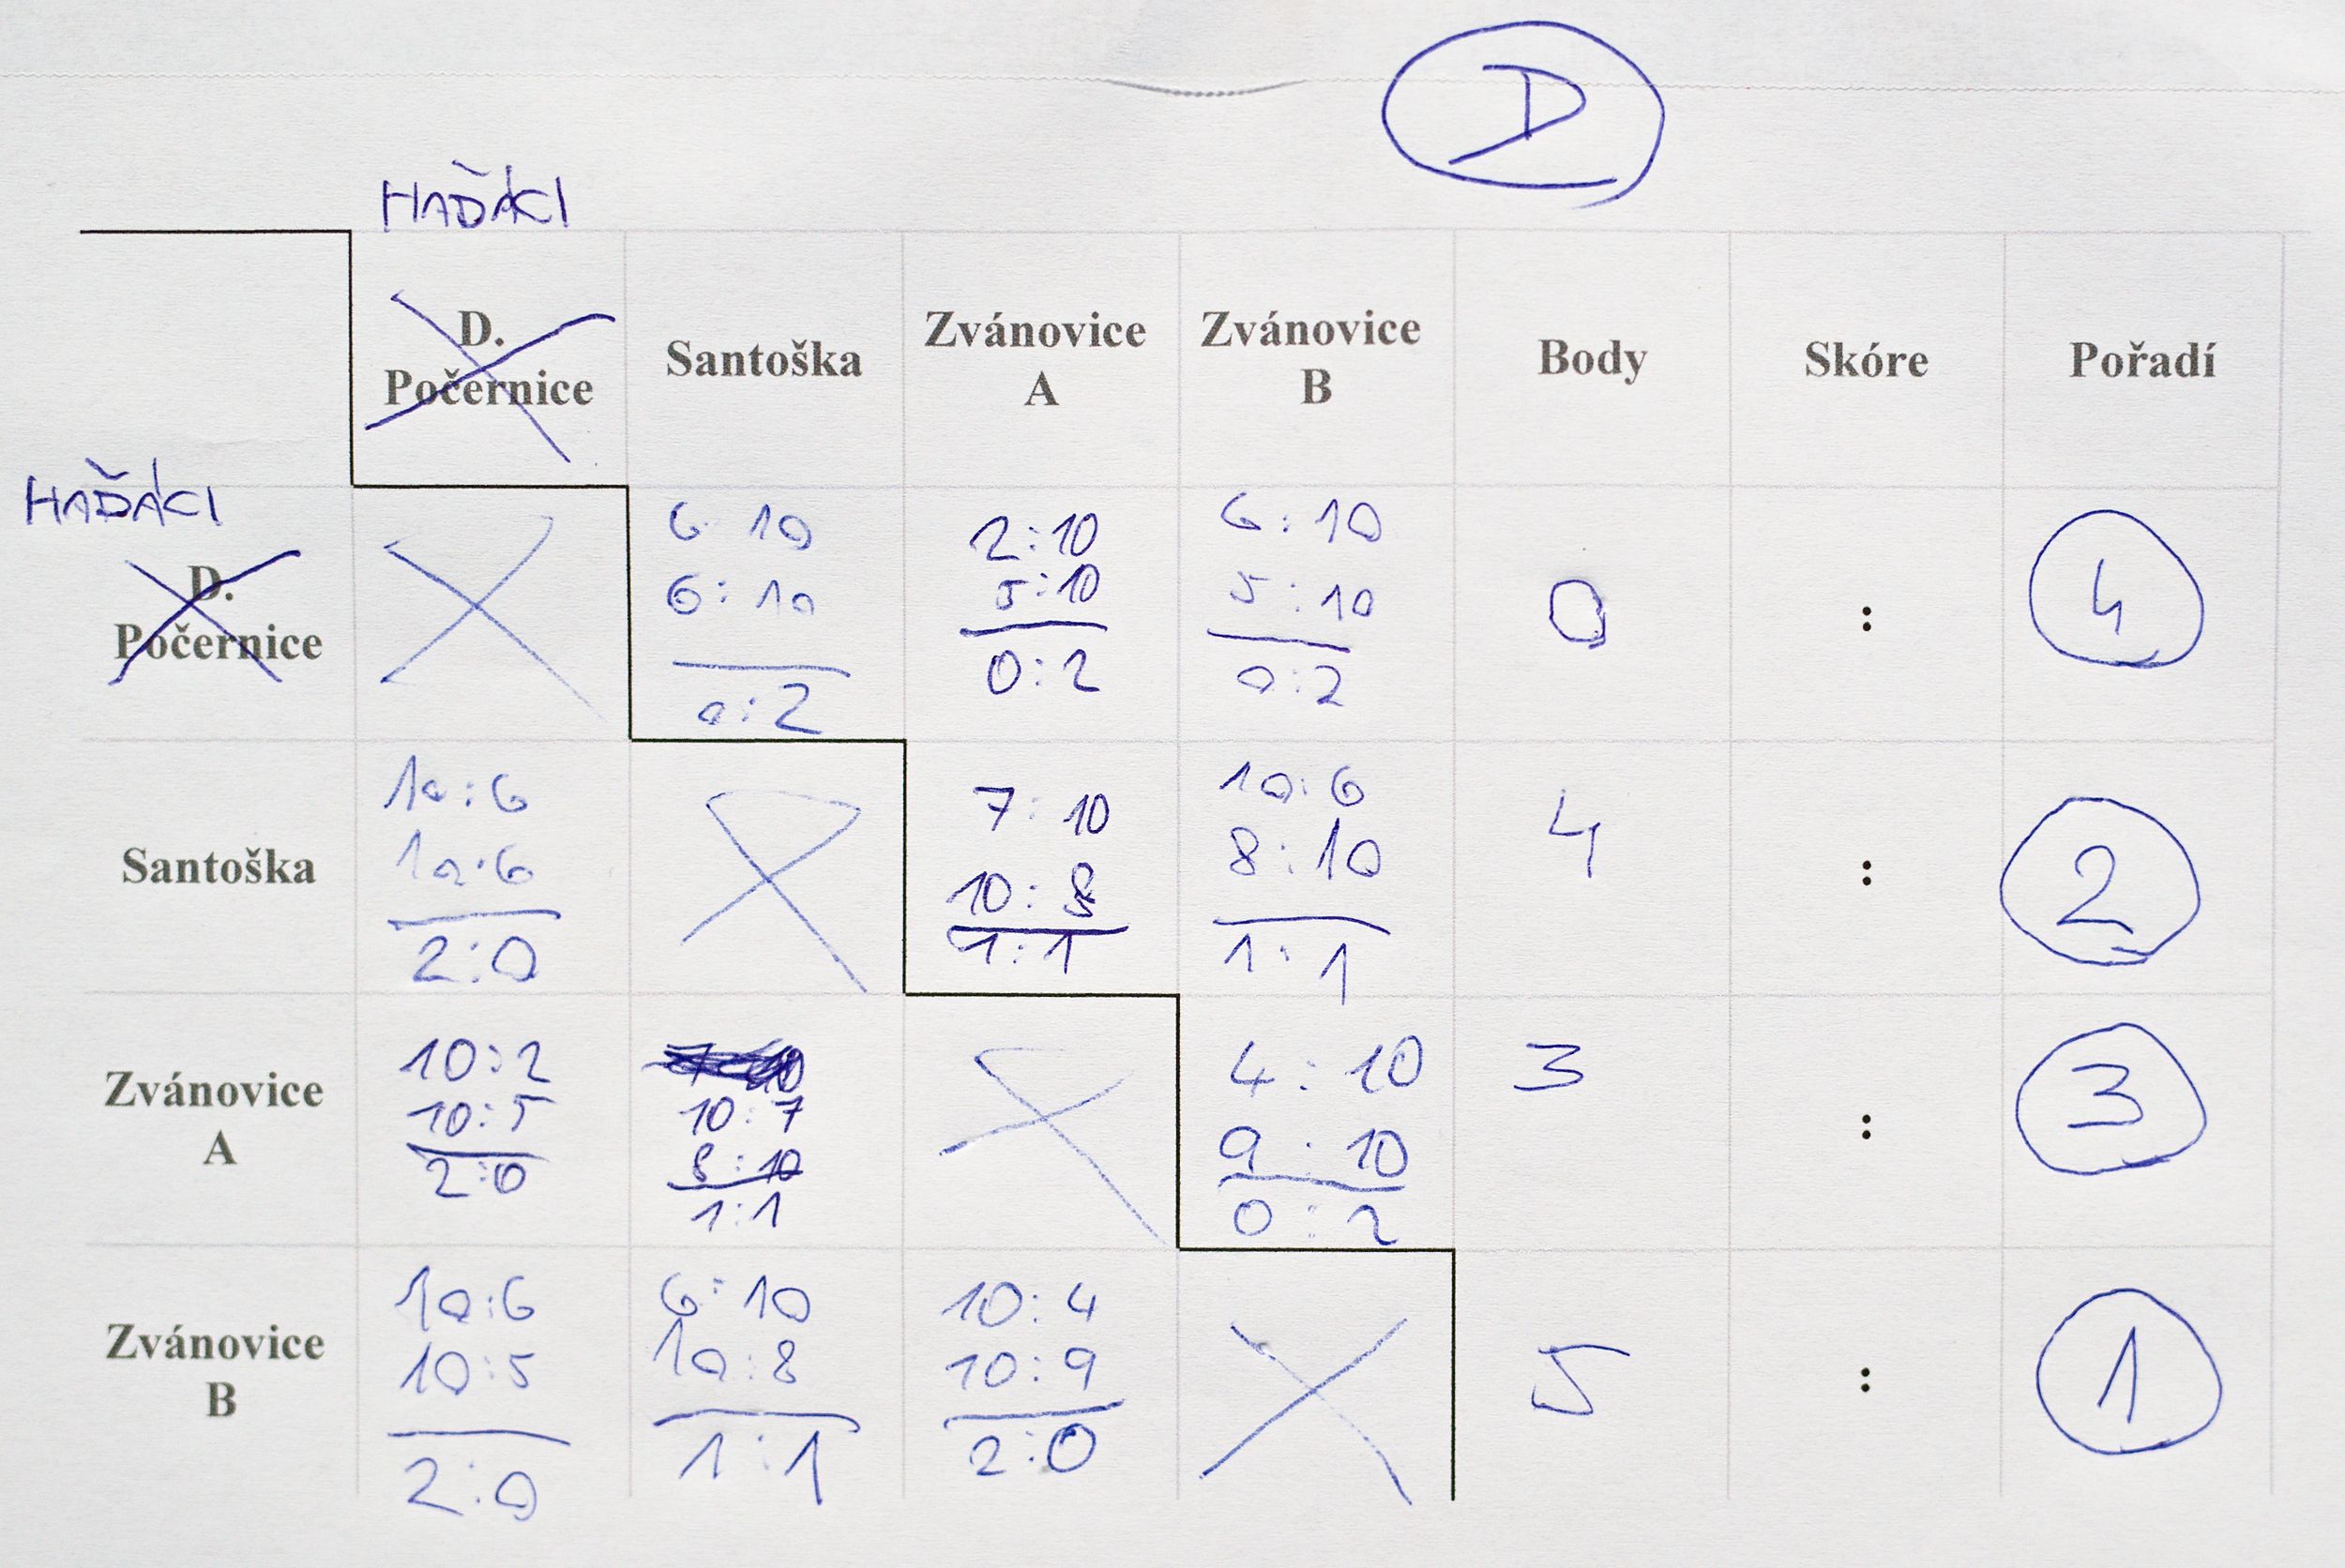 D
HAĎÁCI
D. Počernice Santoška Zvánovice A Zvánovice B Body Skóre Pořadí
HAĎÁCI
D. Počernice
6 10
6:10
0:2
2:10
5:10
0:2
6:10
5:10
0:2
0
:
4
Santoška
10:6
10:6
2:0
7:10
10:8
1:1
10:6
8:10
1:1
4
:
2
Zvánovice A
10:2
10:5
2:0
10:7
8:10
1:1
4:10
9:10
0:2
3
:
3
Zvánovice B
10:6
10:5
2:0
6:10
10:8
1:1
10:4
10:9
2:0
5
:
1